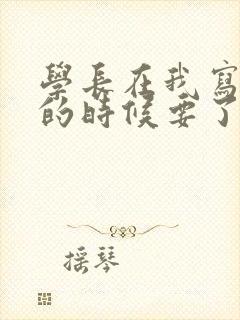 學長在我寫
的時候要了
摇琴